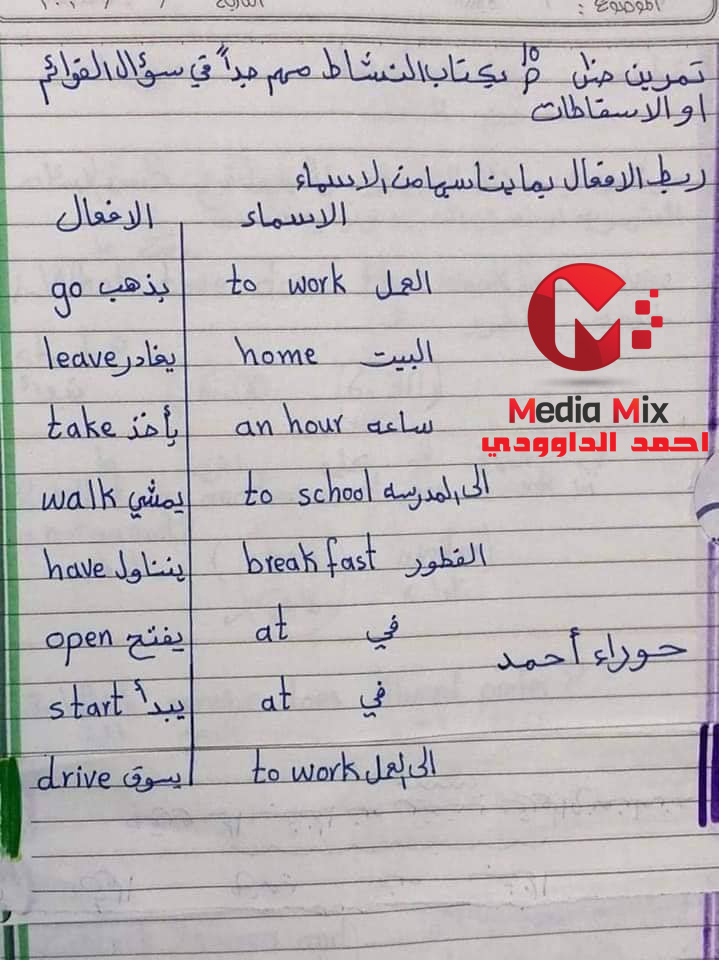 الموضوع :
التاريخ / /
تمرين حل 10 p بكتاب النشاط مهم جداً في سؤال القوائم
او الاسقاطات
ربط الافعال بما يناسبها من الاسماء
الافعال الاسماء
go يذهب to work العمل
leave يغادر home البيت
take يأخذ an hour ساعه
walk يمشي to school الى المدرسه
have يتناول breakfast الفطور
open يفتح at في
start يبدأ at في
drive يسوق to work الى العمل
Media Mix
احمد الداوودي
حوراء أحمد